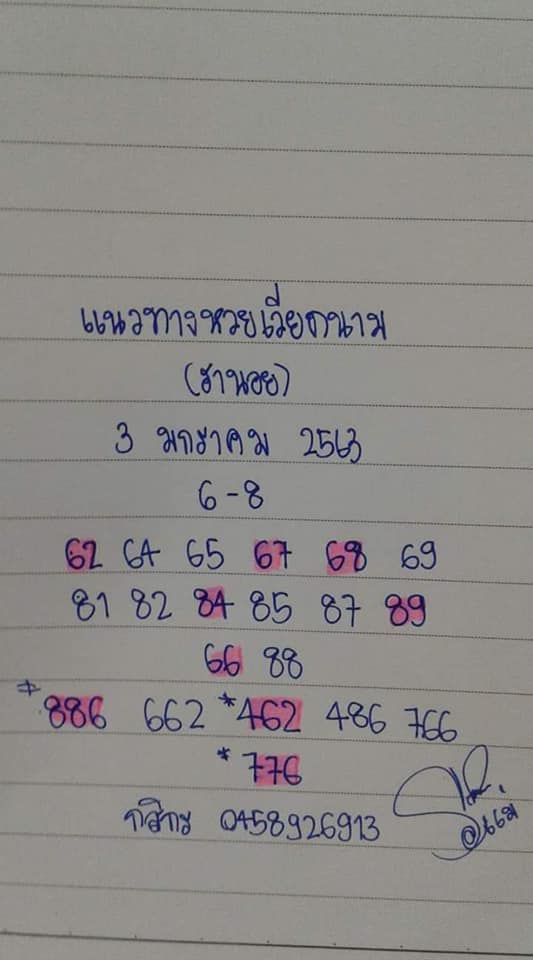 แนวทางหวยเวียดนาม
(ฮานอย)
3 มกราคม 2563
6-8
62 64 65 67 68 69
81 82 84 85 87 89
66 88
*886 662 *462 486 766
*776
กสิกร 0458926913
@แม